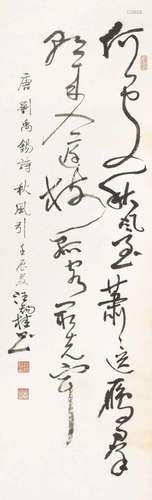 何處秋風至蕭〻送雁羣
朝來入庭樹孤客最先聞
唐劉禹錫詩秋風引壬辰夏汪